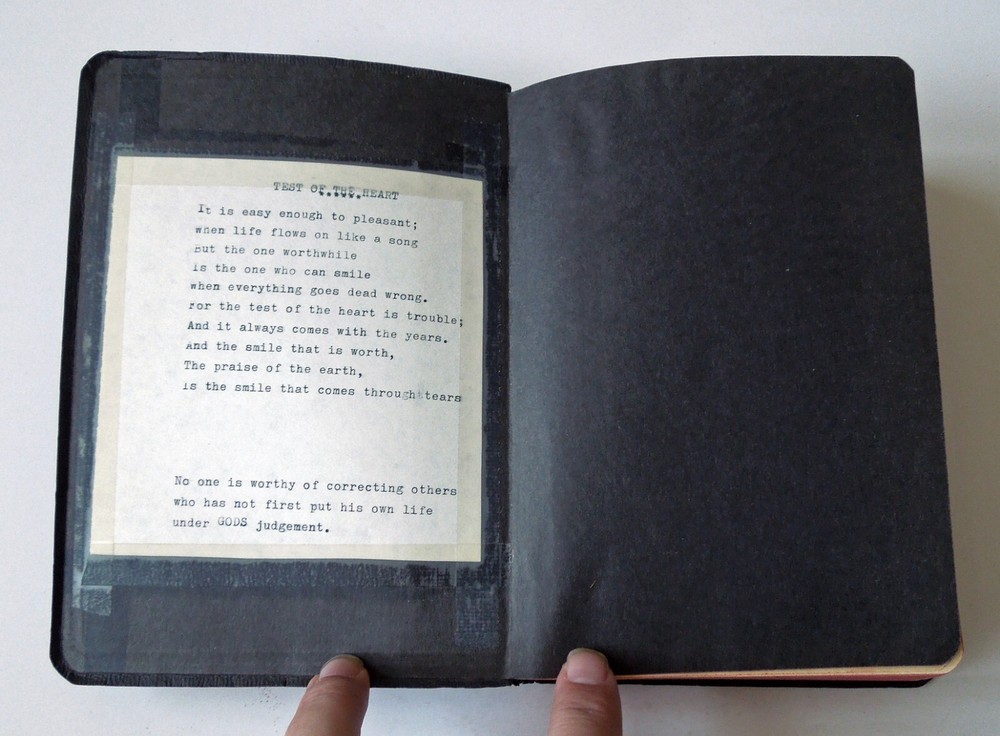 TEST OF THE HEART
It is easy enough to pleasant;
when life flows on like a song
But the one worthwhile
Is the one who can smile
when everything goes dead wrong.
For the test of the heart is trouble;
And it always comes with the years.
And the smile that is worth,
The praise of the earth,
Is the smile that comes through tears
No one is worthy of correcting others
who has not first put his own life
under GODS judgement.